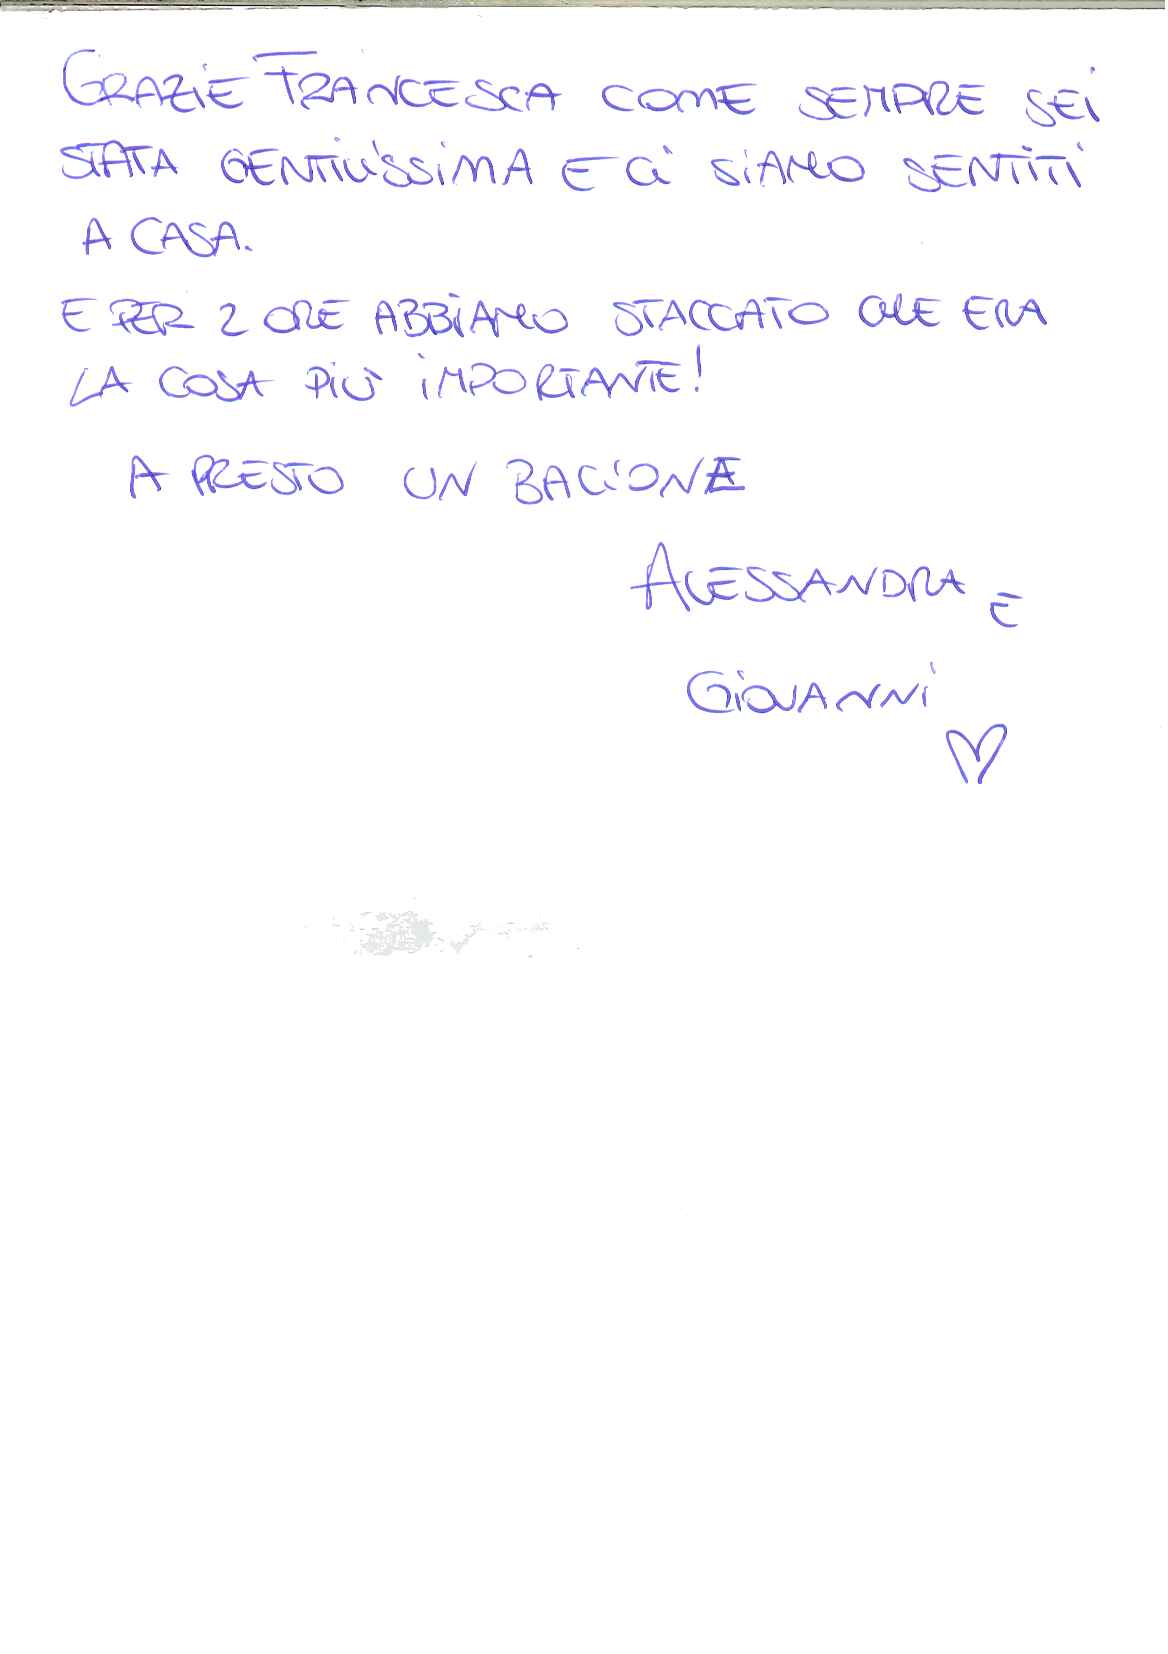 GRAZIE FRANCESCA COME SEMPRE SEI
STATA GENTILISSIMA E CI SIAMO SENTITI
A CASA.
E PER 2 ORE ABBIAMO STACCATO CHE ERA
LA COSA PIÙ IMPORTANTE!
A PRESTO UN BACIONE
ALESSANDRA E
GIOVANNI